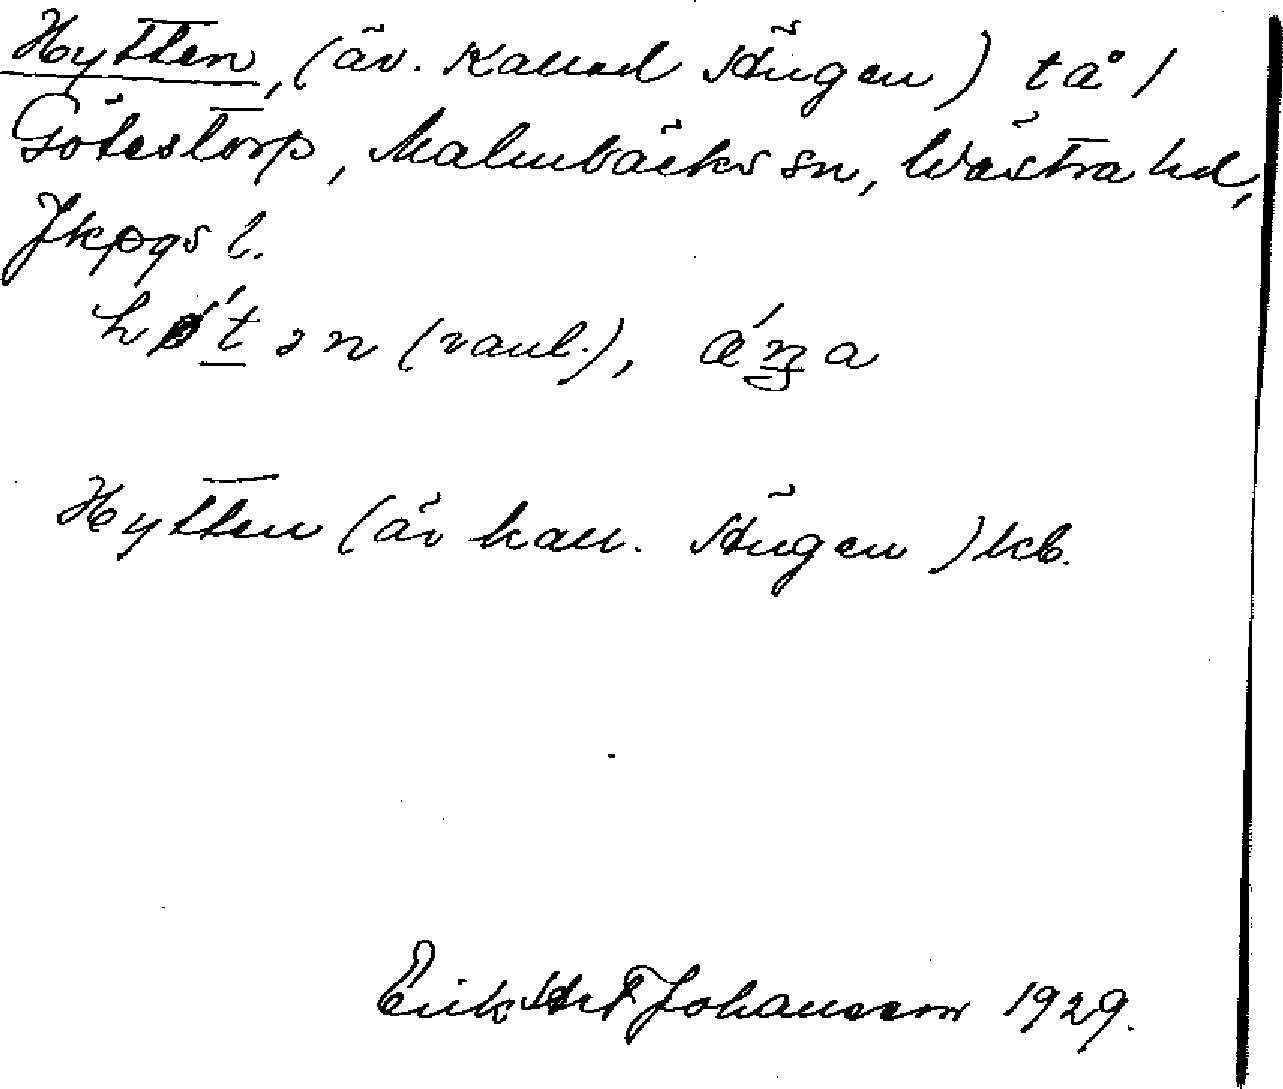 Hytten, (äv. kallad Ängen) tå 1
Götestorp, Malmbäcks sn, Västra hd,
Jkpgs l.
(vanl.),
Hytten (äv kall. Ängen) kb.
Erik Johansson 1929.